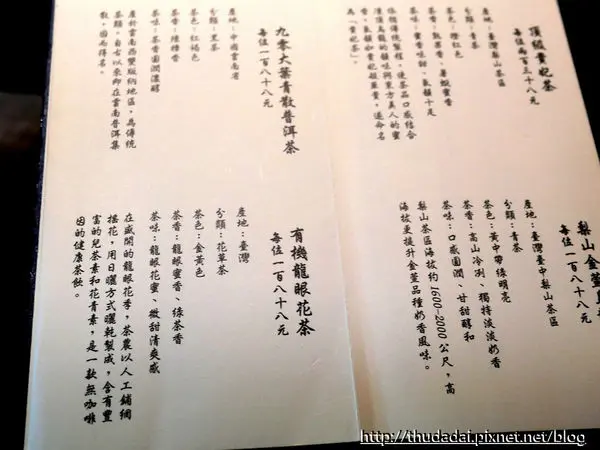 頂級貴妃茶
每位兩百三十八元
產地:臺灣梨山茶區
分類:青茶
茶色:橙紅色
茶香:熟果香、著蜒蜜香
茶味:蜜香味甜、氣韻十足
依循傳統製程,使茶品口感結合
凍頂烏龍的韻味與東方美人的蜜
香,氣韻如貴妃般豐貴,遂命名
為「貴妃茶」。
梨山金萱
每位一百八十八元
產地:臺灣臺中梨山茶區
分類:青茶
茶色:黃中帶綠明亮
茶香:高山冷冽、獨特淡淡奶香
茶味:口感圓潤、甘甜醇和
梨山茶區海拔約1600-2000公尺,高
海拔更提升金萱品種奶香風味。
九零大葉青散普洱茶
每位一百八十八元
產地:中國雲南省
分類:黑茶
茶色:紅褐色
茶香:陳檀香
茶味:茶香圓潤濃醇
產於雲南西雙版納地區,為傳統
茶類,自古以來即在雲南普洱集
散,因而得名。
有機龍眼花茶
每位一百八十八元
產地:臺灣
分類:花草茶
茶色:金黃色
茶香:龍眼蜜香、綠茶香
茶味:龍眼花蜜、微甜清爽感
在盛開的龍眼花季,茶農以人工鋪網
搖花,用日曬方式曬乾製成,含有豐
富的兒茶素和花青素,是一款無咖啡
因的健康茶飲。
http://thudadai.pixnet.net/blog